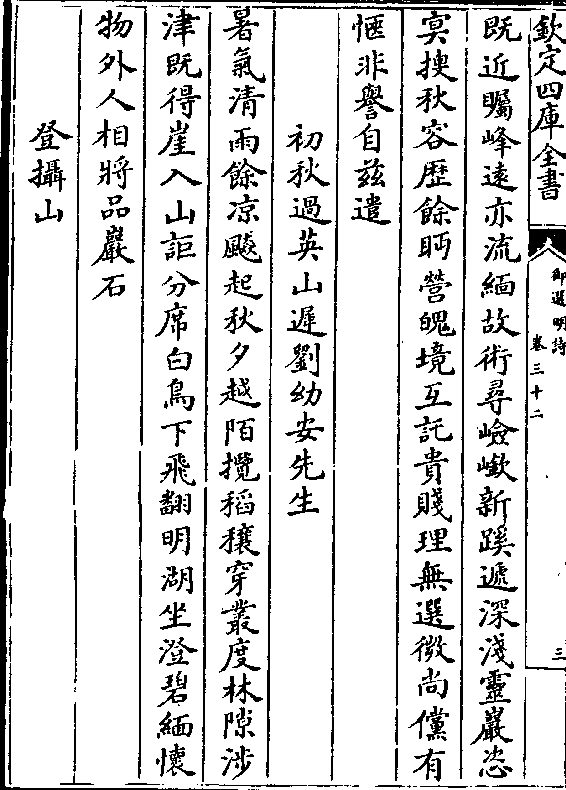 欽定四庫全書
御選明詩
卷三十二
三
既近矚峰遠亦流緬故術尋嶮巇新蹊遞深淺靈巖恣
冥搜秋容歴餘眄營魄境互託貴賤理無選微尚儻有
愜非譽自兹遣
初秋過英山遲劉幼安先生
暑氣清雨餘凉飇起秋夕越陌攬稻穰穿叢度林隙涉
津既得崖入山詎分席白鳥下飛翻明湖坐澄碧緬懷
物外人相將品巖石
登攝山